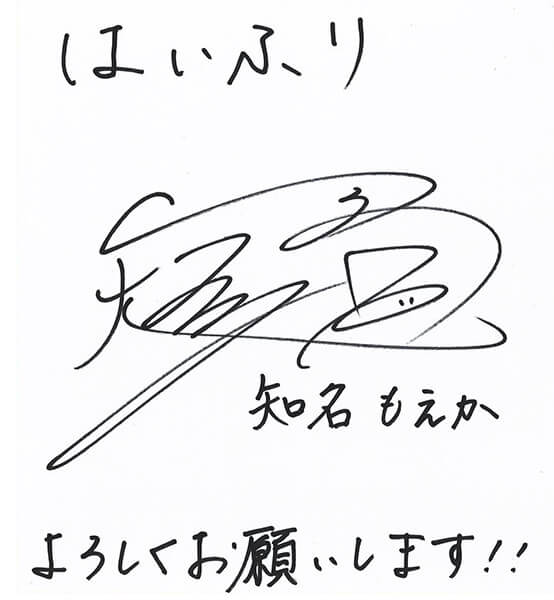 はいふり
知名もえか
よろしくお願いします!!